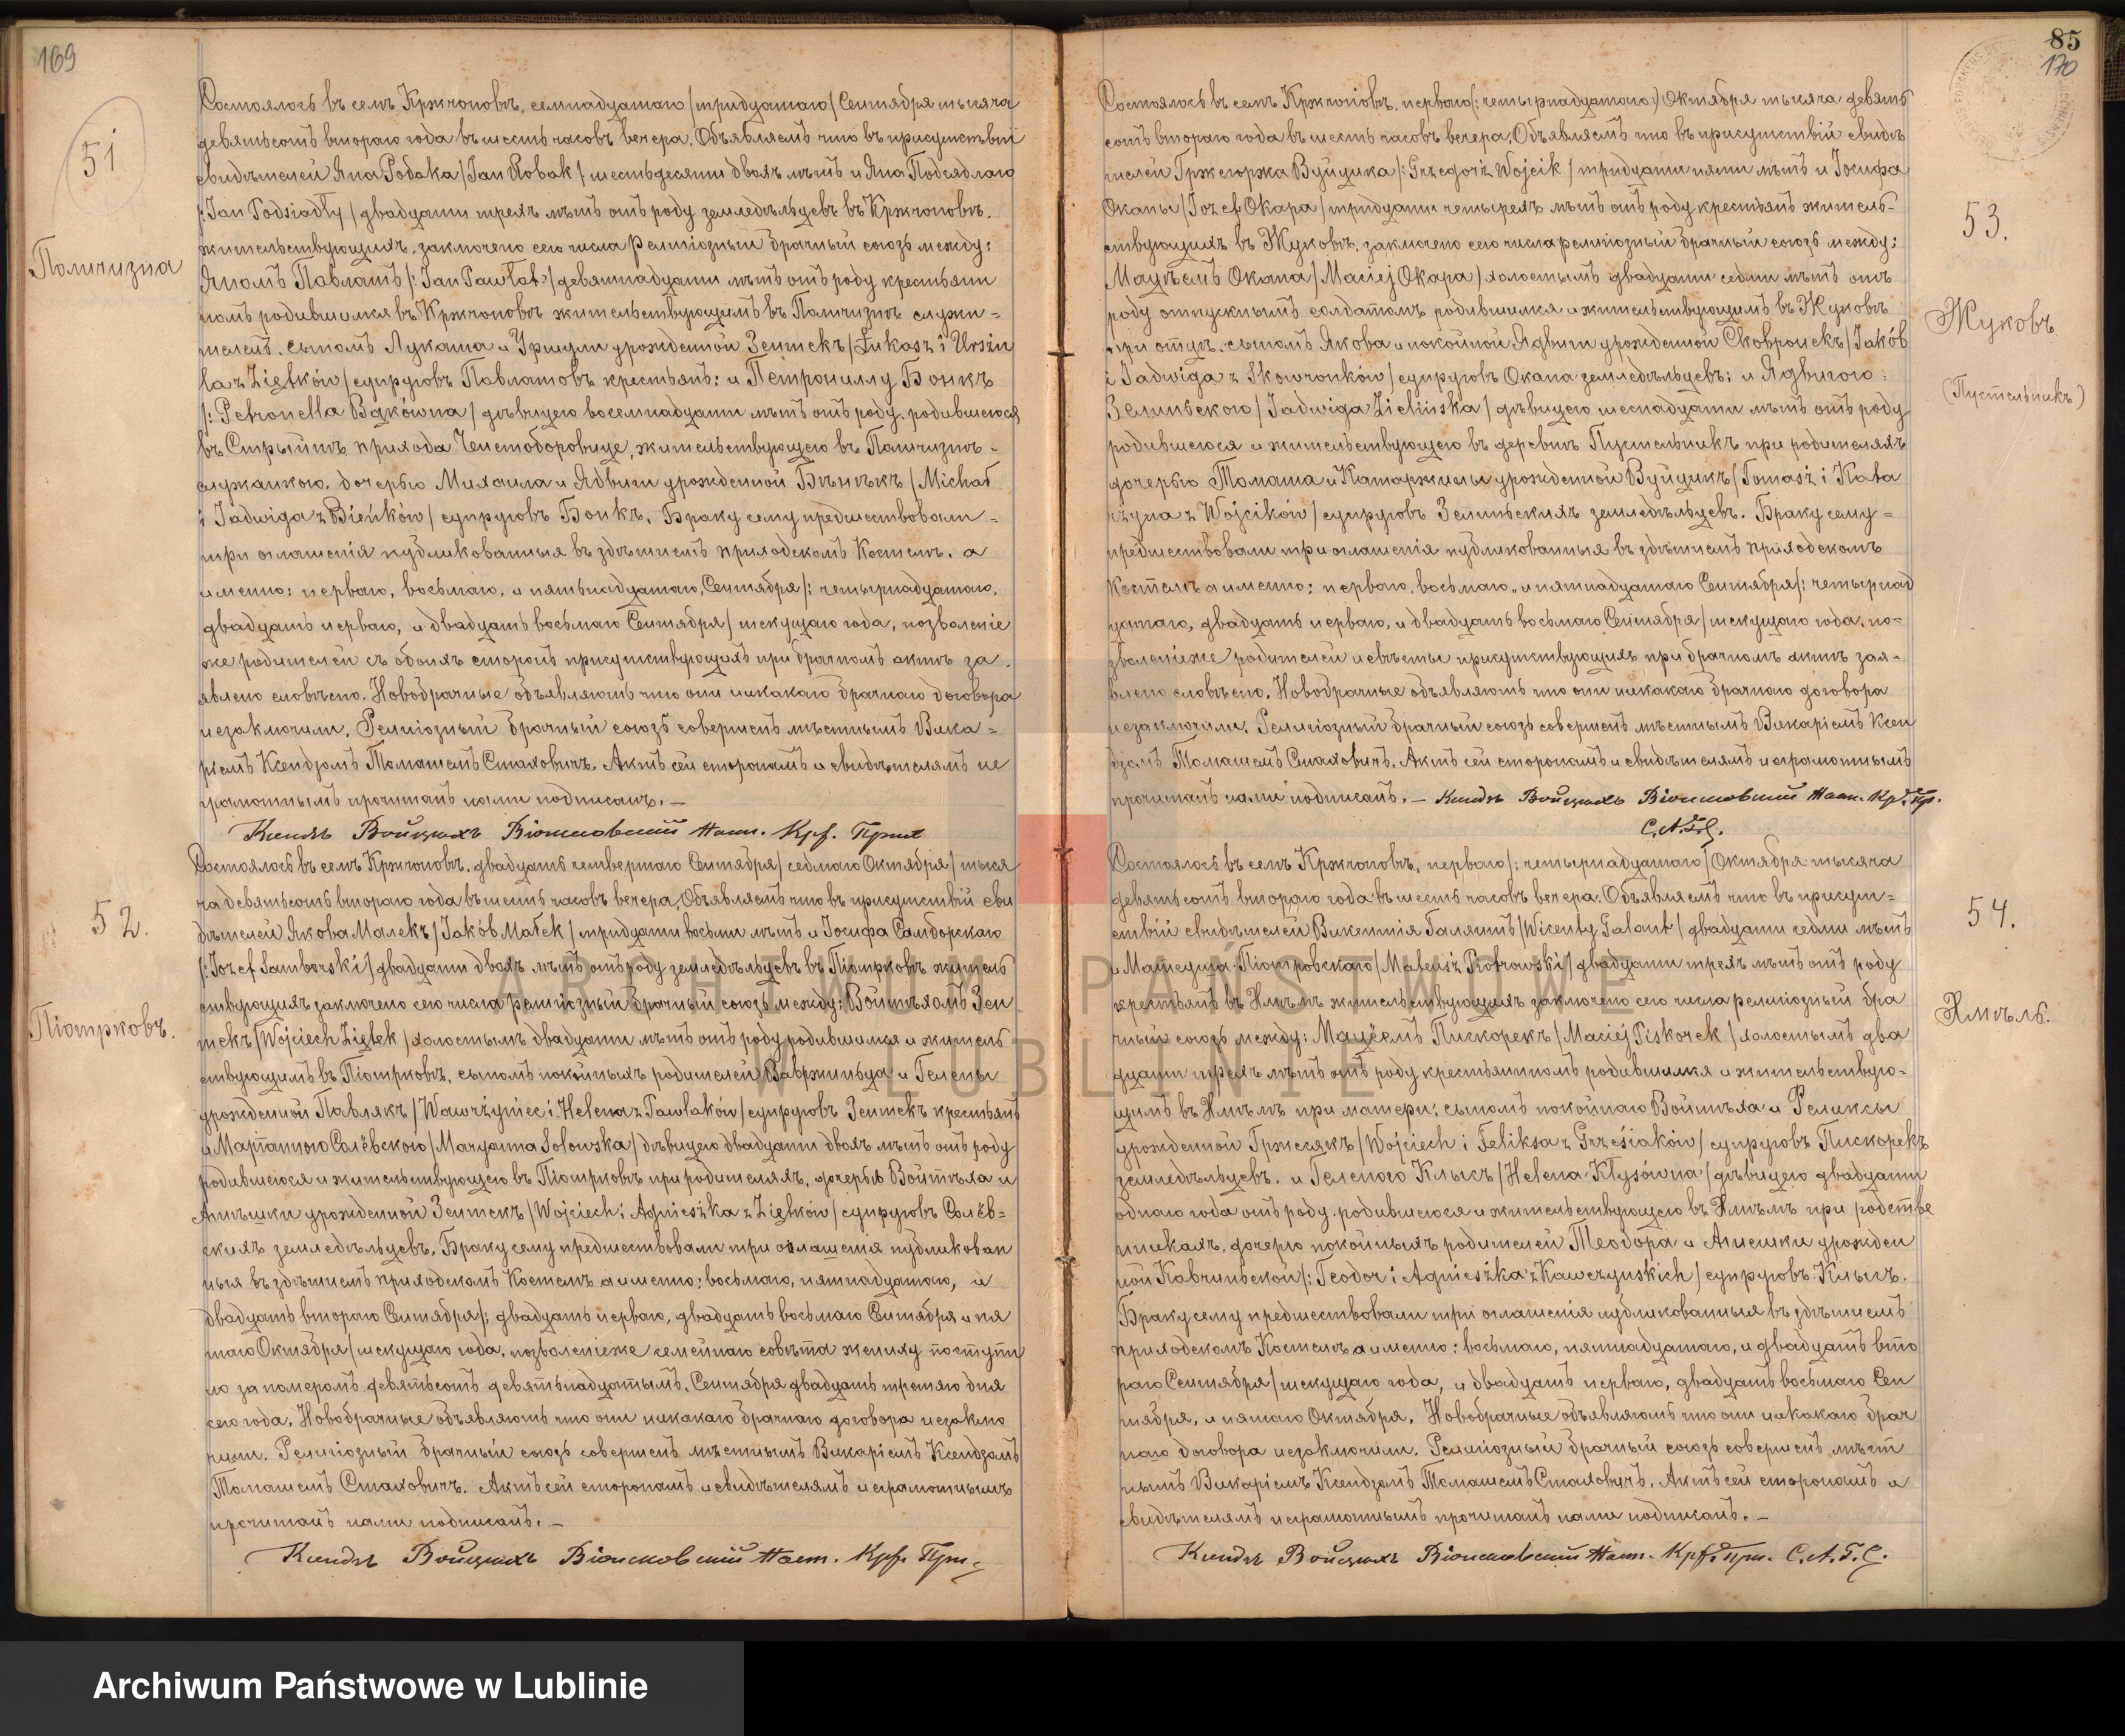 169
51
Полчизна
Состоялось въ селѣ Кржчоновѣ, семнадцатаго /тридцатаго/ Сентября тысяча
девятьсотъ втораго года въ шесть часовъ вечера. Объявляемъ что въ присутствіи
свидѣтелей Яна Робака /Jan Robak/ шестьдесяти двохъ лѣтъ и Яна Подсядлаго
/:Jan Podsiadły/ двадцати трехъ лѣтъ отъ роду земледѣльцевъ въ Кржчоновѣ
жительствующихъ, заключено сего числа религіозный брачный союзъ между:
Яномъ Павлатъ /:Jan Pawłat:/ девятнадцати лѣтъ отъ роду крестьяни
номъ родившимся въ Кржчоновѣ жительствующимъ въ Полчизнѣ служи-
телемъ, сыномъ Лукаша и Уршули урожденной Зентекъ /Łukasz i Urszu
la z Ziętków/ супруговъ Павлатовъ крестьянъ: и Петрониллу Бонкъ
/:Petronella Bąkówna/ дѣвицею восемнадцати лѣтъ отъ роду, родившеюся
въ Стрыйнѣ прихода Чистоборовице, жительствующею въ Полчизнѣ-
служанкою, дочерью Михаила и Ядвиги урожденной Бѣнѣкъ /Michał
i Jadwiga z Bieńków/ супруговъ Бонкъ. Браку сему предшествовали-
три оглашенія публикованныя въ здѣшнемъ приходскомъ Костелѣ, а
именно: перваго, восьмаго, и пятьнадцатаго, Сентября /: четырнадцатаго,
двадцать перваго, и двадцать восьмаго Сентября/ текущаго года, позволеніе
же родителей съ обоихъ сторонъ присутствующихъ при брачномъ актѣ за-
явлено словесно. Новобрачные объявляютъ что они никакаго брачнаго договора
незаключили. Религіозный брачный союзъ совершенъ мѣстнымъ Вика-
ріемъ Ксендзомъ Томашемъ Стаховичъ. Актъ сей сторонамъ и свидѣтелямъ не
грамотнымъ прочитанъ нами подписанъ. —
Ксендзъ Войцехъ Наст. Крч. Прих
52.
Піотрковъ.
Состоялось въ селѣ Кржчоновѣ, двадцать четвертаго Сентября /седмаго Октября/ тыся
ча девятьсотъ втораго года въ шесть часовъ вечера. Объявляемъ что въ присутствіи сви
дѣтелей Якова Малекъ /Jakób Małek/ тридцати восьми лѣтъ и Іосифа Самборскаго
/:Józef Samborski/ двадцати двохъ лѣтъ отъ роду земледѣльцевъ въ Піотрковѣ житель
ствующихъ заключено сего числа религіозный брачный союзъ между: Войтѣхомъ Зен
текъ /Wojciech Ziętek/ холостымъ двадцати лѣтъ отъ роду родившимся и житель
ствующимъ въ Піотрковѣ, сыномъ покойныхъ родителей Вавржиньца и Гелены
урожденной Павлякъ /Wawrzyniec i Helena z Pawlaków/ супруговъ Зентекъ крестьянъ
и Маріанною Солёвскою /Maryanna Solowska/ дѣвицею двадцати двохъ лѣтъ отъ роду
родившеюся и жительствующею въ Піотрковѣ при родителяхъ, дочерью Войтѣха и
Агнѣшки урожденной Зентекъ /Wojciech i Agnieszka z Ziętków/ супруговъ Солёв-
скихъ земледѣльцевъ. Браку сему предшествовали три оглашенія публикован
ныя въ здѣшнемъ приходскомъ Костелѣ а именно: восьмаго, пятнадцатаго, и
двадцать втораго Сентября /: двадцать перваго, двадцать восьмаго Сентября и пя
таго Октября/ текущаго года, позволеніеже семейнаго совѣта жениху поступи
ло за номеромъ девятьсотъ девятьнадцатымъ, Сентября двадцать третяго дня
сего года. Новобрачные объявляютъ что они никакаго брачнаго договора незаклю
чили. Религіозный брачный союзъ совершенъ мѣстнымъ Викаріемъ Ксендзомъ
Томашемъ Стаховичъ. Актъ сей сторонамъ и свидѣтелямъ неграмотнымъ
прочитанъ нами подписанъ. —
Ксендзъ Войцехъ Наст. Крч. Прих.
85
170
53.
Жуковъ
(Пустельникъ)
Состоялось въ селѣ Кржчоновѣ, перваго /:четырнадцатаго:/ Октября тысяча девять
сотъ втораго года въ шесть часовъ вечера. Объявляемъ что въ присутствіи свидѣ
телей Гржегоржа Вуйцика /:Grzegorz Wojcik/ тридцати пяти лѣтъ и Іосифа
Окапы /Józef Okapa/ тридцати четырехъ лѣтъ отъ роду крестьянъ житель-
ствующихъ въ Жуковѣ, заключено сего числа религіозный брачный союзъ между:
Мацѣемъ Окапа /Maciej Okapa/ холостымъ двадцати седми лѣтъ отъ
роду отпускнымъ солдатомъ родившимся и жительствующимъ въ Жуковѣ
при отцѣ, сыномъ Якова и покойной Ядвиги урожденной Сковронекъ /Jakób
i Jadwiga z Skowronków/ супруговъ Окапа земледѣльцевъ: и Ядвигою
Зелиньскою /Jadwiga Zielińska/ дѣвицею шеснадцати лѣтъ отъ роду
родившеюся и жительствующею въ деревнѣ Пустельникъ при родителяхъ
дочерью Томаша и Катаржины урожденной Вуйцикъ /Tomasz i Kata
rzyna z Wojcików/ супруговъ Зелиньскихъ земледѣльцевъ. Браку сему-
предшествовали три оглашенія публикованныя въ здѣшнемъ приходскомъ
Костелѣ а именно: перваго, восьмаго, и пятнадцатаго Сентября /: четырнад
цатаго, двадцать перваго, и двадцать восьмаго Сентября/ текущаго года, по-
зволеніеже родителей невѣсты присутствующихъ при брачномъ актѣ зая-
влено словесно. Новобрачные объявляютъ что они никакаго брачнаго договора
незаключили. Религіозный брачный союзъ совершенъ мѣстнымъ Викаріемъ Ксен
дзомъ Томашемъ Стаховичъ. Актъ сей сторонамъ и свидѣтелямъ неграмотнымъ
прочитанъ нами подписанъ. — Ксендзъ Войцехъ Наст. Крч. Пр.
С.А.Г.С.
54.
Ямѣль.
Состоялось въ селѣ Кржчоновѣ, перваго /: четырнадцатаго/ Октября тысяча
девятьсотъ втораго года въ шесть часовъ вечера. Объявляемъ что въ присут-
ствіи свидѣтелей Викентія Галянтъ /Wicenty Galant/ двадцати седми лѣтъ
и Матеуша Піотровскаго /Mateusz Piotrowski/ двадцати трехъ лѣтъ отъ роду
крестьянъ въ Ямѣлѣ жительствующихъ заключено сего числа религіозный бра
чный союзъ между: Мацѣемъ Пискорекъ /Maciej Piskorek/ холостымъ два
дцати трехъ лѣтъ отъ роду крестьянномъ родившимся и жительствую-
щимъ въ Ямѣлѣ при матери; сыномъ покойнаго Войтѣха и Феликсы
урожденной Гржесякъ /Wojciech i Feliksa z Grześiaków/ супруговъ Пискорекъ
земледѣльцевъ, и Геленою Клысъ /Helena Kłysówna/ дѣвицею двадцати
одного года отъ роду, родившеюся и жительствующею въ Ямѣлѣ при родстве
нникахъ, дочерю покойныхъ родителей Теодора и Агнешки урожден
ной Кавчиньской /:Teodor i Agnieszka z Kawczynskich/ супруговъ Клысъ.
Браку сему предшествовали три оглашенія публикованныя въ здѣшнемъ
приходскомъ Костелѣ а именно: восьмаго, пятнадцатаго, и двадцать вто
раго Сентября /текущаго года, и двадцать перваго, двадцать восьмаго Сен
тября, и пятаго Октября. Новобрачные объявляютъ что они никакаго брач
наго договора незаключили. Религіозный брачный союзъ совершенъ мѣст
нымъ Викаріемъ Ксендзомъ Томашемъ Стаховичъ. Актъ сей сторонамъ и
свидѣтелямъ неграмотнымъ прочитанъ нами подписанъ. —
Ксендзъ Войцехъ Наст. Крч. Прих. С.А.Г.С.
ARCHIWUM PAŃSTWOWE
W LUBLINIE
Archiwum Państwowe w Lublinie